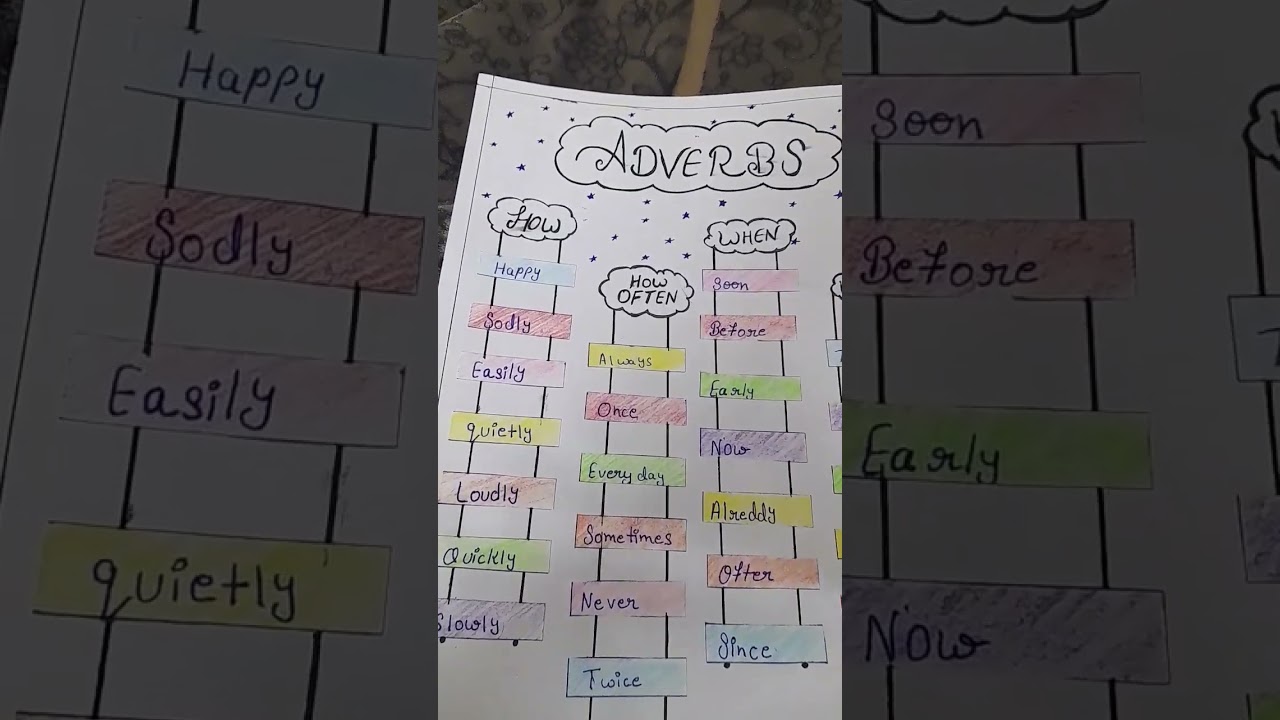 ADVERBS
HOW
Happy
Sodly
Easily
quietly
Loudly
Quickly
Slowly
HOW
OFTEN
Always
Once
Every day
Sometimes
Never
Twice
WHEN
Soon
Before
Early
Now
Alreddy
Ofter
Since
Happy
Sodly
Easily
quietly
Soon
Before
Early
Now